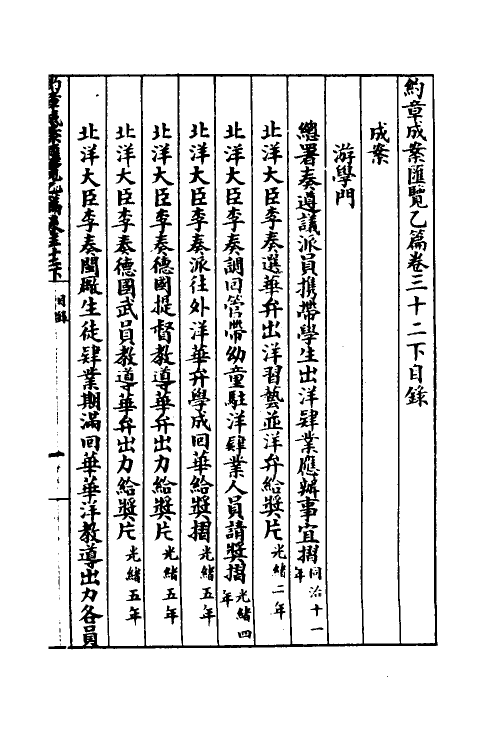 約章成案匯覽乙篇卷三十二下目錄
成案
游學門
總署奏遵議派員携帶學生出洋肄業應辦事宜摺同治十一年
北洋大臣李奏選華弁出洋習藝並洋弁給獎片光緒二年
北洋大臣李奏調回管帶幼童駐洋肄業人員請獎摺光緒四年
北洋大臣李奏派往外洋華弁學成回華給獎摺光緒五年
北洋大臣李奏德國提督教導華弁出力給獎片光緒五年
北洋大臣李奏德國武員教導華弁出力給獎片光緒五年
北洋大臣李奏閩廠生徒肄業期滿回華華洋教導出力各員
約章成案匯覽乙篇卷三十二下
目錄
一